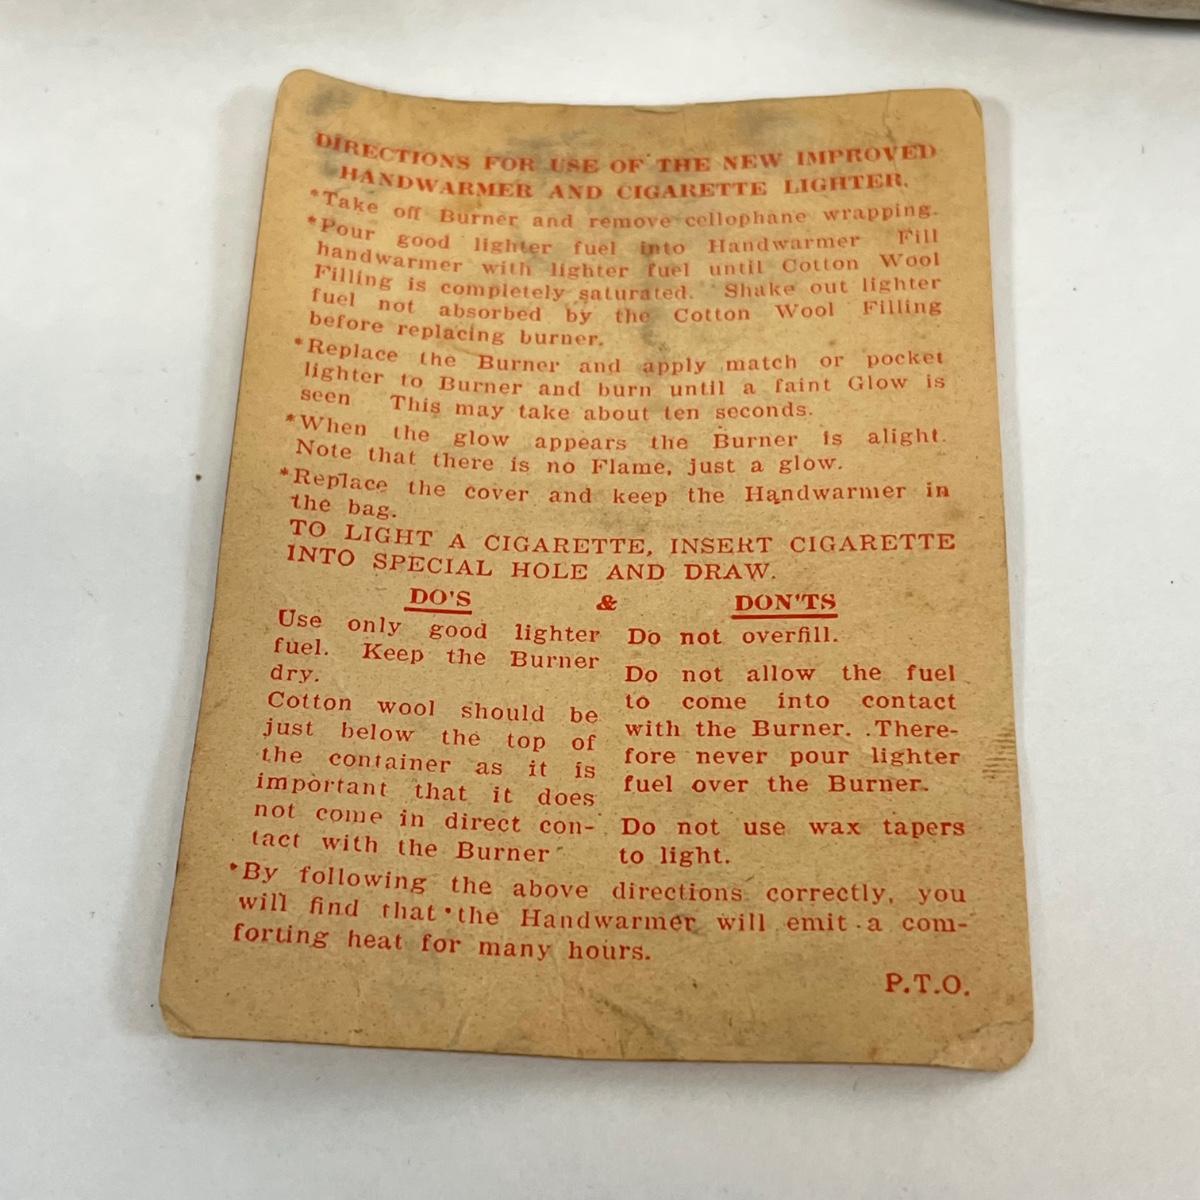 DIRECTIONS FOR USE OF THE NEW IMPROVED
HANDWARMER AND CIGARETTE LIGHTER.
*Take off Burner and remove cellophane wrapping.
*Pour good lighter fuel into Handwarmer Fill
handwarmer with lighter fuel until Cotton Wool
Filling is completely saturated. Shake out lighter
fuel not absorbed by the Cotton Wool Filling
before replacing burner.
*Replace the Burner and apply match or pocket
lighter to Burner and burn until a faint Glow is
seen This may take about ten seconds.
*When the glow appears the Burner is alight.
Note that there is no Flame, just a glow.
*Replace the cover and keep the Handwarmer in
the bag.
TO LIGHT A CIGARETTE, INSERT CIGARETTE
INTO SPECIAL HOLE AND DRAW.
DO'S & DON'TS
Use only good lighter
fuel. Keep the Burner
dry.
Cotton wool should be
just below the top of
the container as it is
important that it does
not come in direct con-
tact with the Burner
Do not overfill.
Do not allow the fuel
to come into contact
with the Burner. There-
fore never pour lighter
fuel over the Burner.
Do not use wax tapers
to light.
*By following the above directions correctly, you
will find that the Handwarmer will emit a com-
forting heat for many hours.
P.T.O.